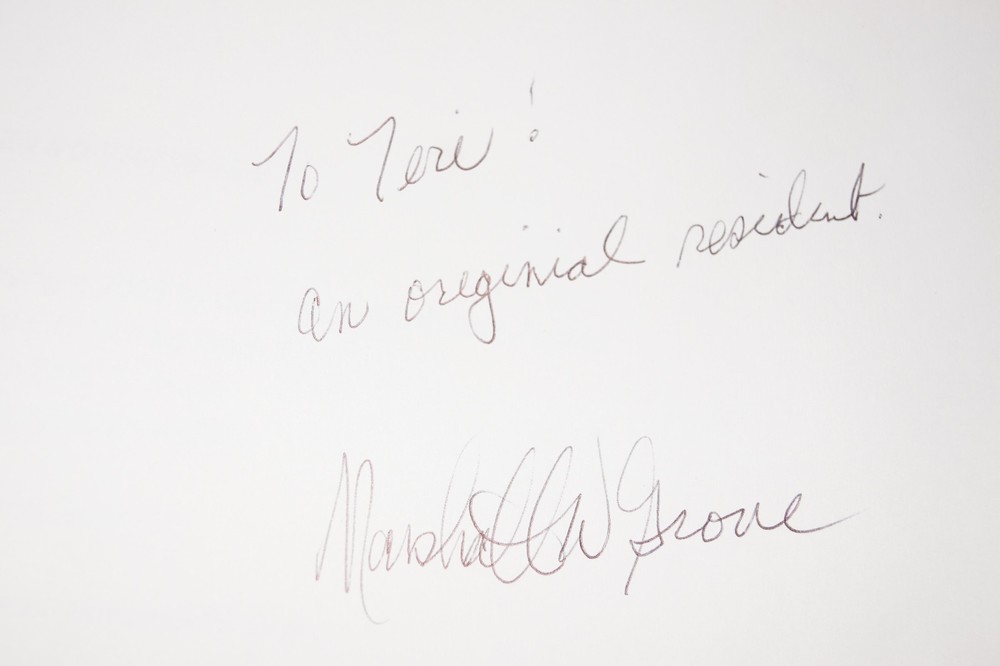 To Teri!
an originial resident.
Marshall W Grove